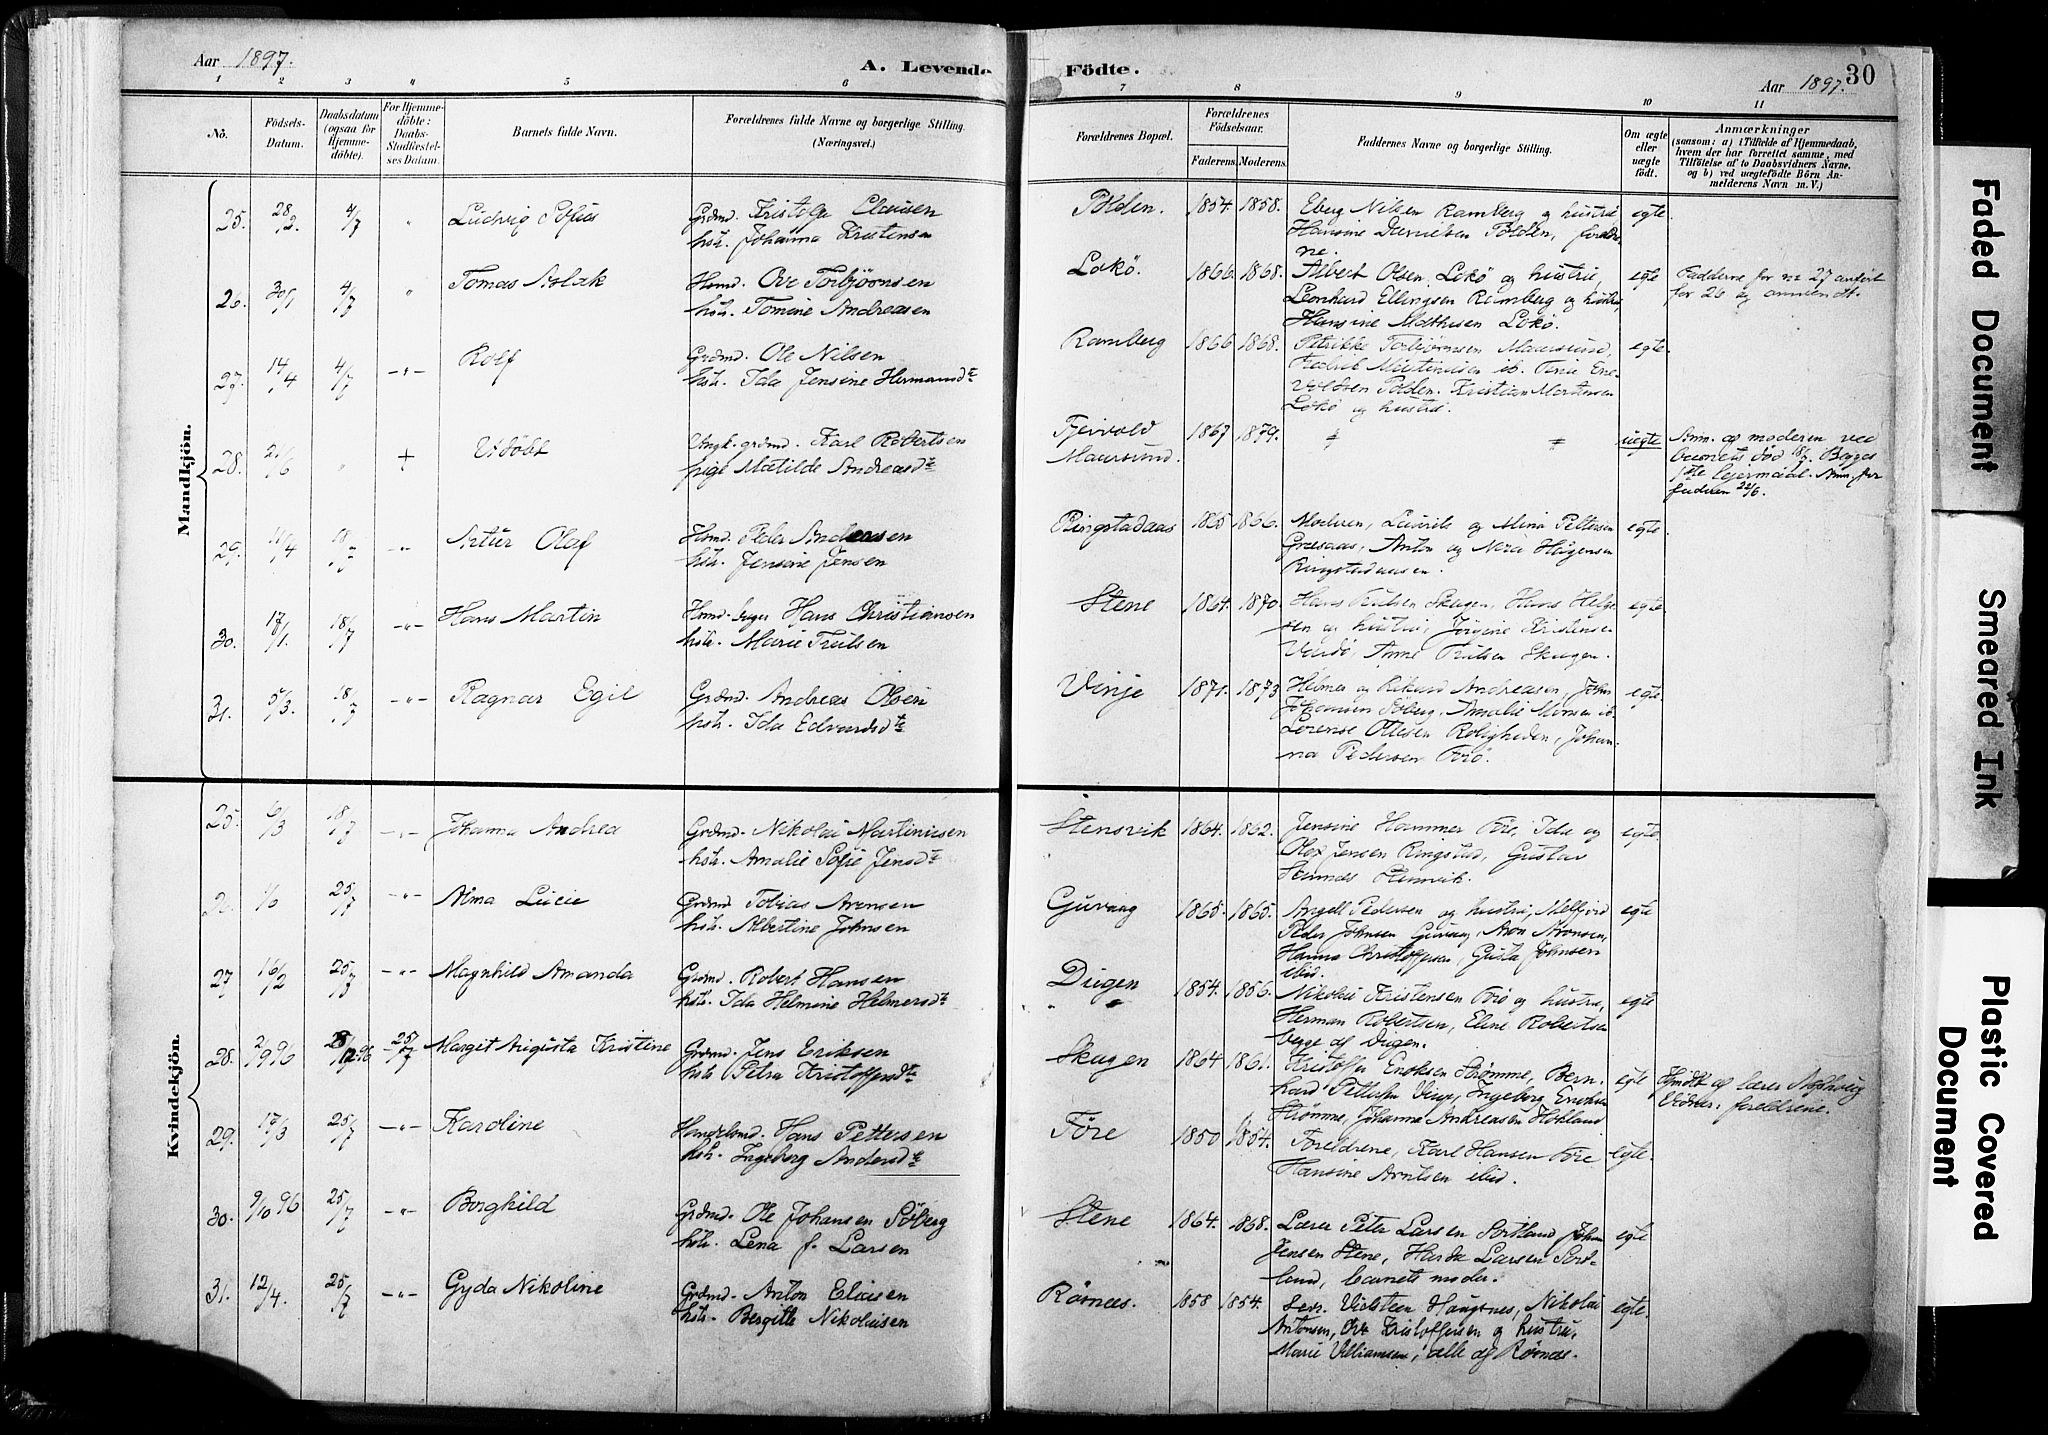 Aar 1897.
A. Levende
Födte.
Aar 1897.
30
1 2 3 4 5 6 7 8 9 10 11
No.
Födsels-
Datum.
Daabsdatum
(ogsaa for
Hjemme-
döbte).
For Hjemme-
döbte:
Daabs-
Stadfæstel-
ses Datum.
Barnets fulde Navn.
Forældrenes fulde Navne og borgerlige Stilling.
(Næringsvei.)
Forældrenes Bopæl.
Forældrenes
Födselsaar.
Faderens. Moderens.
Faddernes Navne og borgerlige Stilling.
Om ægte
eller
uægte
födt.
Anmærkninger
(saasom: a) i Tilfælde af Hjemmedaab,
hvem der har forrettet samme, med
Tilföielse af to Daabsvidners Navne,
og b) ved uægtefödte Börn An-
melderens Navn m. V.)
Mandkjön.
25. 28/2 4/7 " Ludvig Sofus
Grdmd. Kristofer Clausen
hstr. Johanna Kristensen
Polden. 1854. 1858.
Eberg Nilsen Ramberg og hustru, egte
Hansine Danielsen Polden, foreldre-
ne.
26. 30/1 4/7 " Tomas Aslak
Hsmd. Ove Torbjörnsen
hstr. Tomine Andreasen
Lokö. 1866. 1868.
Albert Olsen Lokö og hustru, egte
Leonhard Ellingsen Ramberg og hustru,
Hansine Mathisen Lokö.
Fadderne for no 27 anfört
for 26 og omvendt.
27. 14/4 4/7 -"- Rolf
Grdmd. Ole Nilsen
hstr. Ida Jensine Hermansdtr
Ramberg 1866 1868.
Petrikke Torbjörnsen Maursund, egte.
Fredrik Martinusen ib. Tina Ene-
voldsen Polden. Kristian Mortensen
Lokö og hustru.
28. 21/6 " + Udöbt
Ungk. grdmd. Karl Robertsen
pige Matilde Andreasdtr
Fjeivold
Maursund.
1867 1879.
uegte
Anm. af moderen ved
barnets död 18/7. Begges
1ste leiermaal. Anm. for
faderen 22/6.
29. 11/4 18/7 -"- Artur Olaf
Hsmd. Peder Andreasen
hstr. Jensine Jensen
Ringstadaas 1865 1866.
Moderen, Laurits og Mina Pettersen egte.
Græsaas, Anton og Nora Hågensen
Ringstadaasen.
30. 17/1 18/7 -"- Hans Martin
Hsmd. Inger Hans Christiansen
hstr. Marie Trulsen
Stene 1864. 1870.
Hans Trulsen Skagen, Hans Helge- egte.
sen og hustru, Jörgine Kristensen
Vardö, Anne Trulsen Skagen.
31. 5/3. 18/7 -"- Ragnar Egil
Grdmd. Andreas Olsen
hstr. Ida Edvardsdtr
Vinje 1871. 1873
Helmer og Rikard Andreasen, John egte.
Johansen Söberg, Amalie Monsen ib.
Lorense Ottesen Roligheden, Johan-
na Pedersen Förö.
Kvindekjön.
25. 6/3 18/7 -"- Johanna Andrea
Grdmd. Nikolai Martinusen
hstr. Amalie Sofie Jensdtr
Stensvik 1864. 1862.
Jensine Hammer Före, Ida og egte.
Olea Jensen Ringstad, Gustav
Stennes Stensvik.
26. 1/6 25/7 -"- Alma Lucie
Grdmd Tobias Arensen
hstr. Albertine Johnsen
Guvaag 1865. 1865.
Angell Pedersen og hustru, Melfrid egte
Peder Johnsen Guvaag, Aron Aronsen,
Hanna Christoffersen, Gusta Johnsen
ibid.
27 16/2 25/7 -"- Magnhild Amanda
Grdmd. Robert Hansen
hstr. Ida Helmine Helmersdtr
Dugen 1854. 1856.
Nikolai Kristensen Förö og hustru, egte
Herman Robertsen, Eline Robertsen
begge af Dugen.
28. 2/9 96 28/12 96 25/7 Margit Augusta Kristine
Grdmd. Jens Eriksen
hstr Petra Kristoffersdtr
Skagen 1864 1861.
Kristoffer Enoksen Strömme, Bern- egte
hard Pettersen Vinje, Ingeborg Enoksen
Strömme, Johanna Andreasen Hokland
Hjmdöbt af lærer
Vidner: foreldrene.
29. 17/3 25/7 -"- Karoline
Handelsmd. Hans Pettersen
hstr. Ingeborg Andersdtr
Före 1850 1854.
Foreldrene, Karl Hansen Före egte.
Hansine Arntsen ibid.
30. 9/10 96 25/7 -"- Borghild
Grdmd. Ole Johansen Söberg
hstr. Lena f. Larsen
Stene 1864. 1868.
Lærer Peter Larsen Sortland, Johan egte
Jensen Stene, Harda Larsen Sort-
land, barnets moder.
31. 12/4. 25/7 -"- Gyda Nikoline
Grdmd. Anton Eliasen
hstr. Bergitte Nikolaisen
Rörnæs. 1858 1854.
Sevr. Vidsteen Haugsnes, Nikolai egte.
Antonsen, Ove Kristoffersen og hustru,
Marie Villiamsen, alle af Rörnæs.
Faded Document
Smeared Ink
Plastic Covered
Document